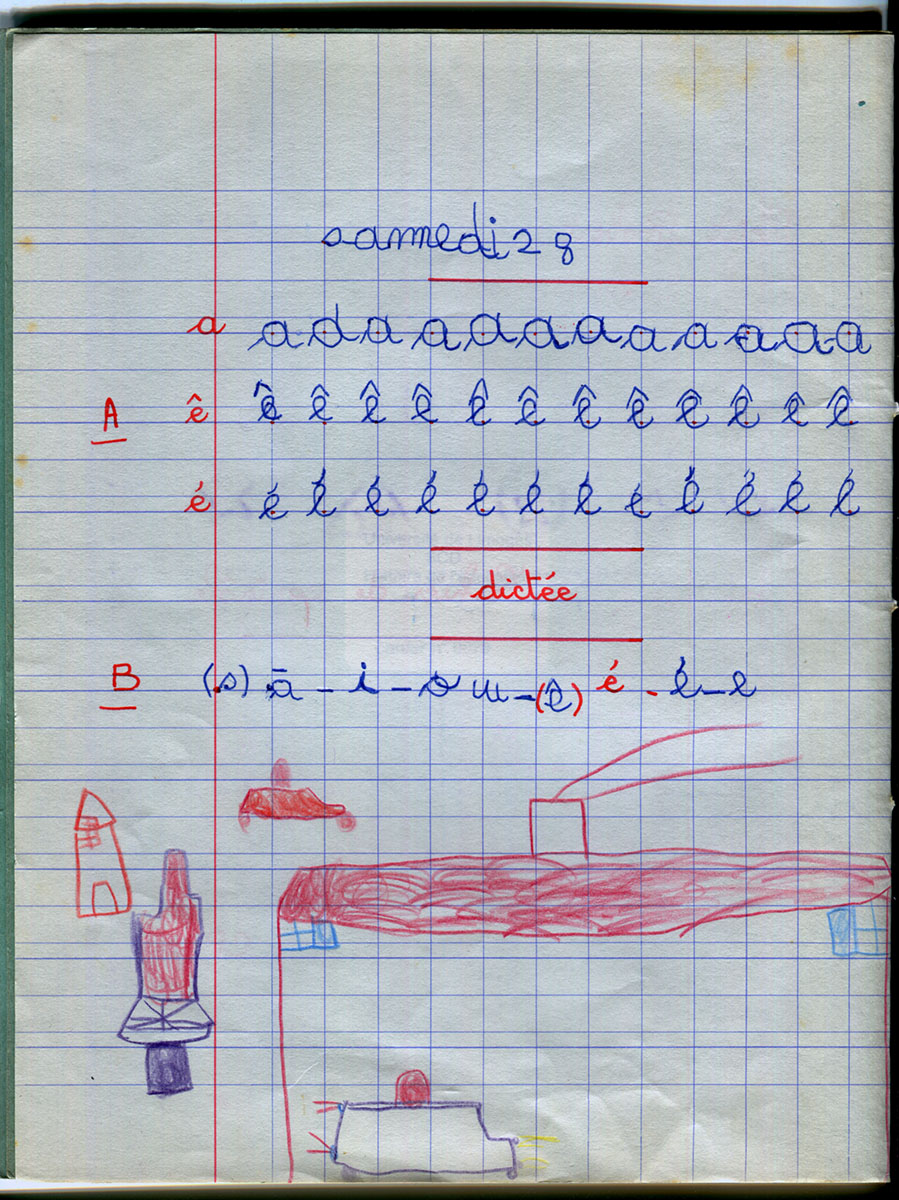 samedi 28
a a a a a a a a a a a a a
A ê ê ê ê ê ê ê ê ê ê ê ê ê
é é é é é é é é é é é é é
dictée
B (s) ā - i - o u - (ê) é - é - e